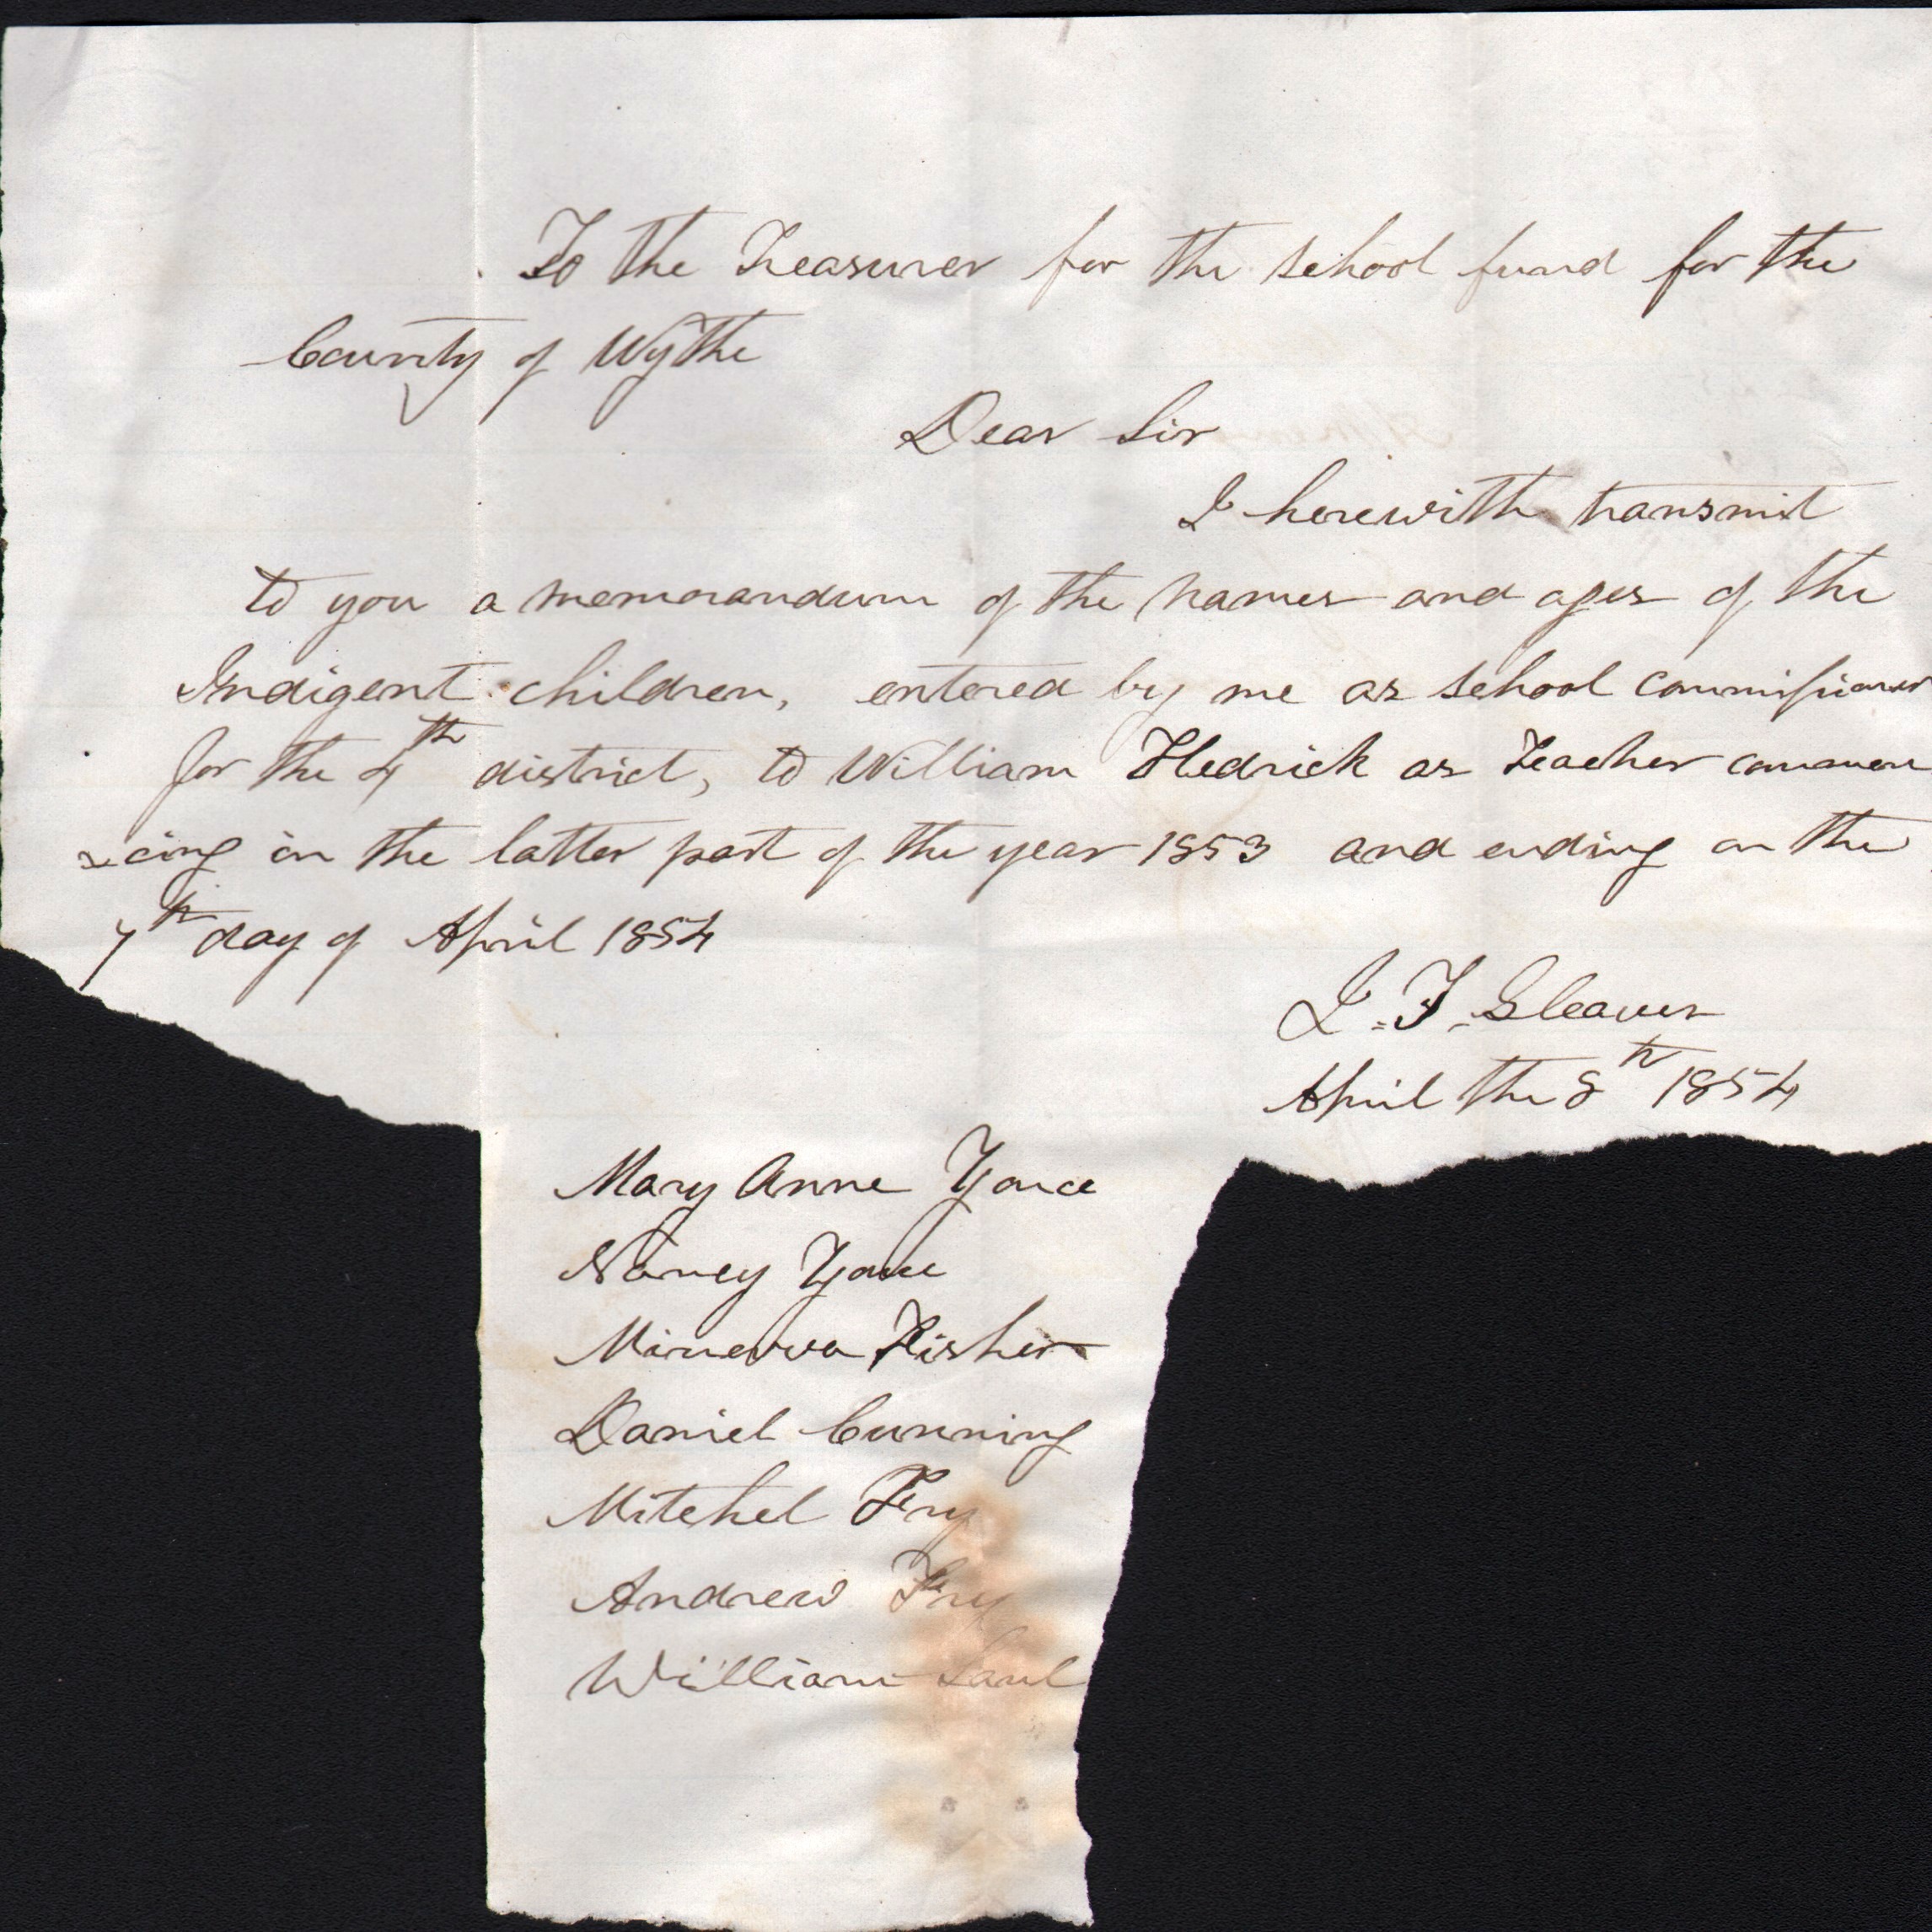 To the Treasurer for the school fund for the
County of Wythe
Dear Sir
I herewith transmit
to you a memorandum of the names and ages of the
Indigent children, entered by me as school commissioner
for the 4th district, to William Hedrick as Teacher commen
cing in the latter part of the year 1853 and ending on the
7th day of April 1854
J. T. Gleaves
April the 8th 1854
Mary Anne Yonce
Nancy Yonce
Minerva Fisher
Daniel Cunning
Mitchel Fry
Andrew Fry
William Saul